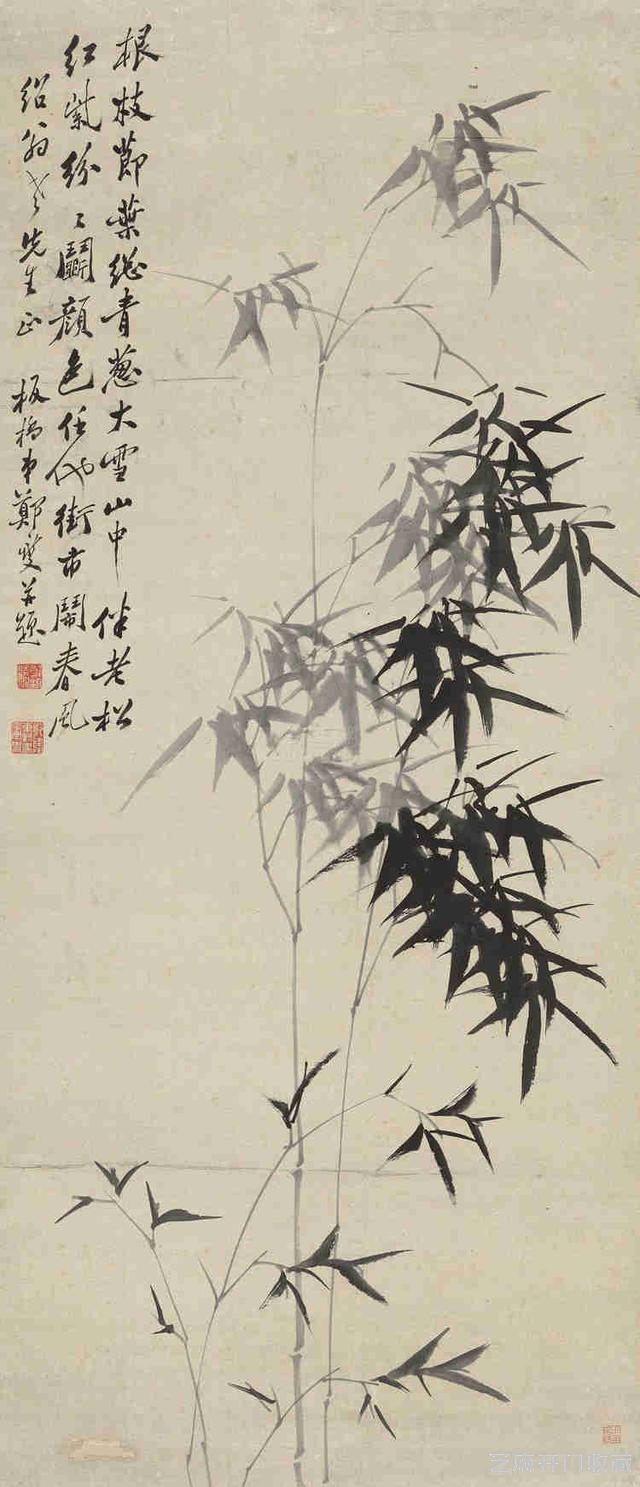 根枝節葉緫青葱大雪山中伴老松
紅紫紛〻鬬顏色任他街市鬧春風
紹翁老先生正 板橋弟鄭燮并題
芝麻开门